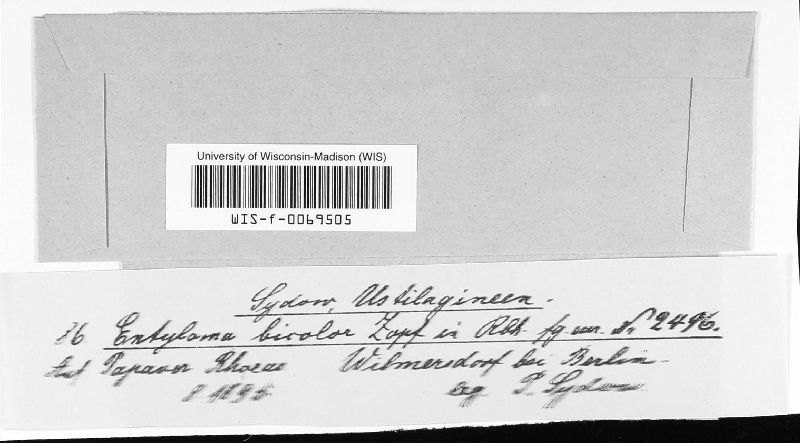 University of Wisconsin-Madison (WIS)
WIS-f-0069505
Sydow, Ustilagineen.
86. Entyloma bicolor Zopf in Rbh. fg. eur. No 2496.
Auf Papaver Rhoeas Wilmersdorf bei Berlin
1895 leg. P. Sydow